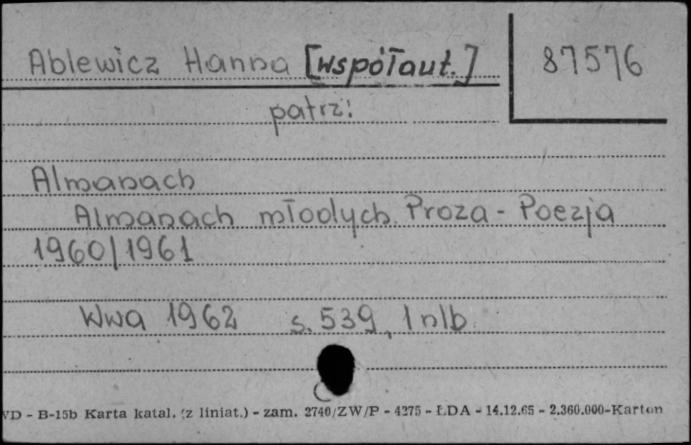 Ablewicz Hanna [współaut.]
87576
patrz:
Almanach
Almanach młodych. Proza - Poezja
1960/1961
Wwa 1962 s. 539, 1 nlb
VD - B-15b Karta katal. (z liniat.) - zam. 2740/ZW/P - 4275 - ŁDA - 14.12.65 - 2.360.000-Karton